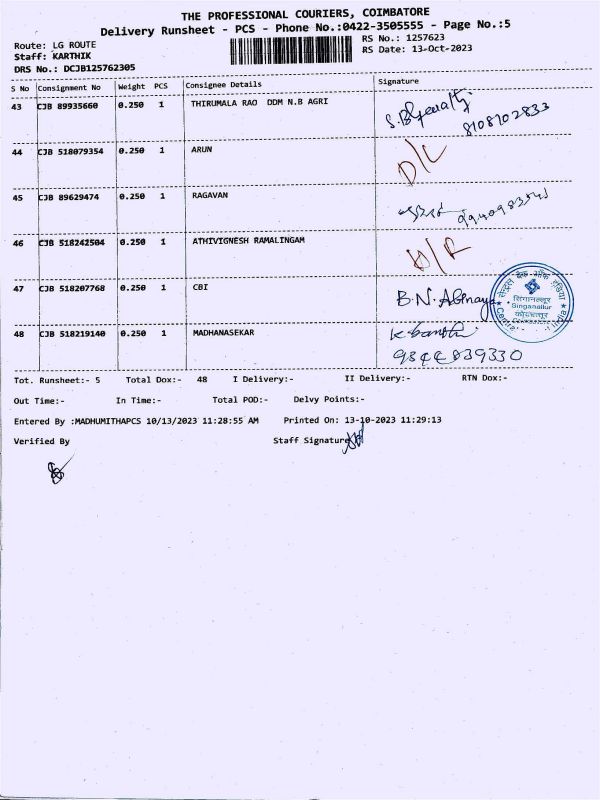 THE PROFESSIONAL COURIERS, COIMBATORE
Delivery Runsheet - PCS - Phone No.:0422-3505555 - Page No.:5
Route: LG ROUTE
RS No.: 1257623
Staff: KARTHIK
RS Date: 13-Oct-2023
DRS No.: DCJB125762305
S No Consignment No Weight PCS Consignee Details Signature
43 CJB 89935660 0.250 1 THIRUMALA RAO DDM N.B AGRI
8108102833
44 CJB 518079354 0.250 1 ARUN D/L
45 CJB 89629474 0.250 1 RAGAVAN
46 CJB 518242504 0.250 1 ATHIVIGNESH RAMALINGAM
47 CJB 518207768 0.250 1 CBI B.N. Abinaya
सेन्ट्रल बैंक ऑफ इंडिया
सिंगानल्लूर
Singanallur
48 CJB 518219140 0.250 1 MADHANASEKAR
9844839330
Tot. Runsheet:- 5 Total Dox:- 48 I Delivery:- II Delivery:- RTN Dox:-
Out Time:- In Time:- Total POD:- Delvy Points:-
Entered By :MADHUMITHAPCS 10/13/2023 11:28:55 AM Printed On: 13-10-2023 11:29:13
Verified By Staff Signature